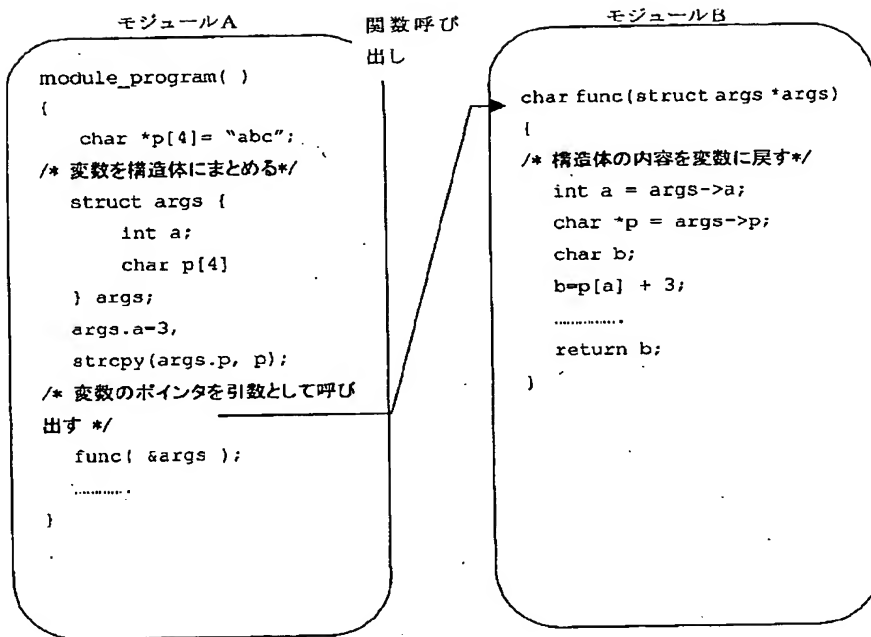 モジュールA
module_program( )
{
char *p[4]= “abc”;
/* 変数を構造体にまとめる*/
struct args {
int a;
char p[4]
} args;
args.a=3,
strcpy(args.p, p);
/* 変数のポインタを引数として呼び
出す */
func( &args );
…………
}
関数呼び
出し
モジュールB
char func(struct args *args)
{
/* 構造体の内容を変数に戻す*/
int a = args->a;
char *p = args->p;
char b;
b=p[a] + 3;
……………
return b;
}